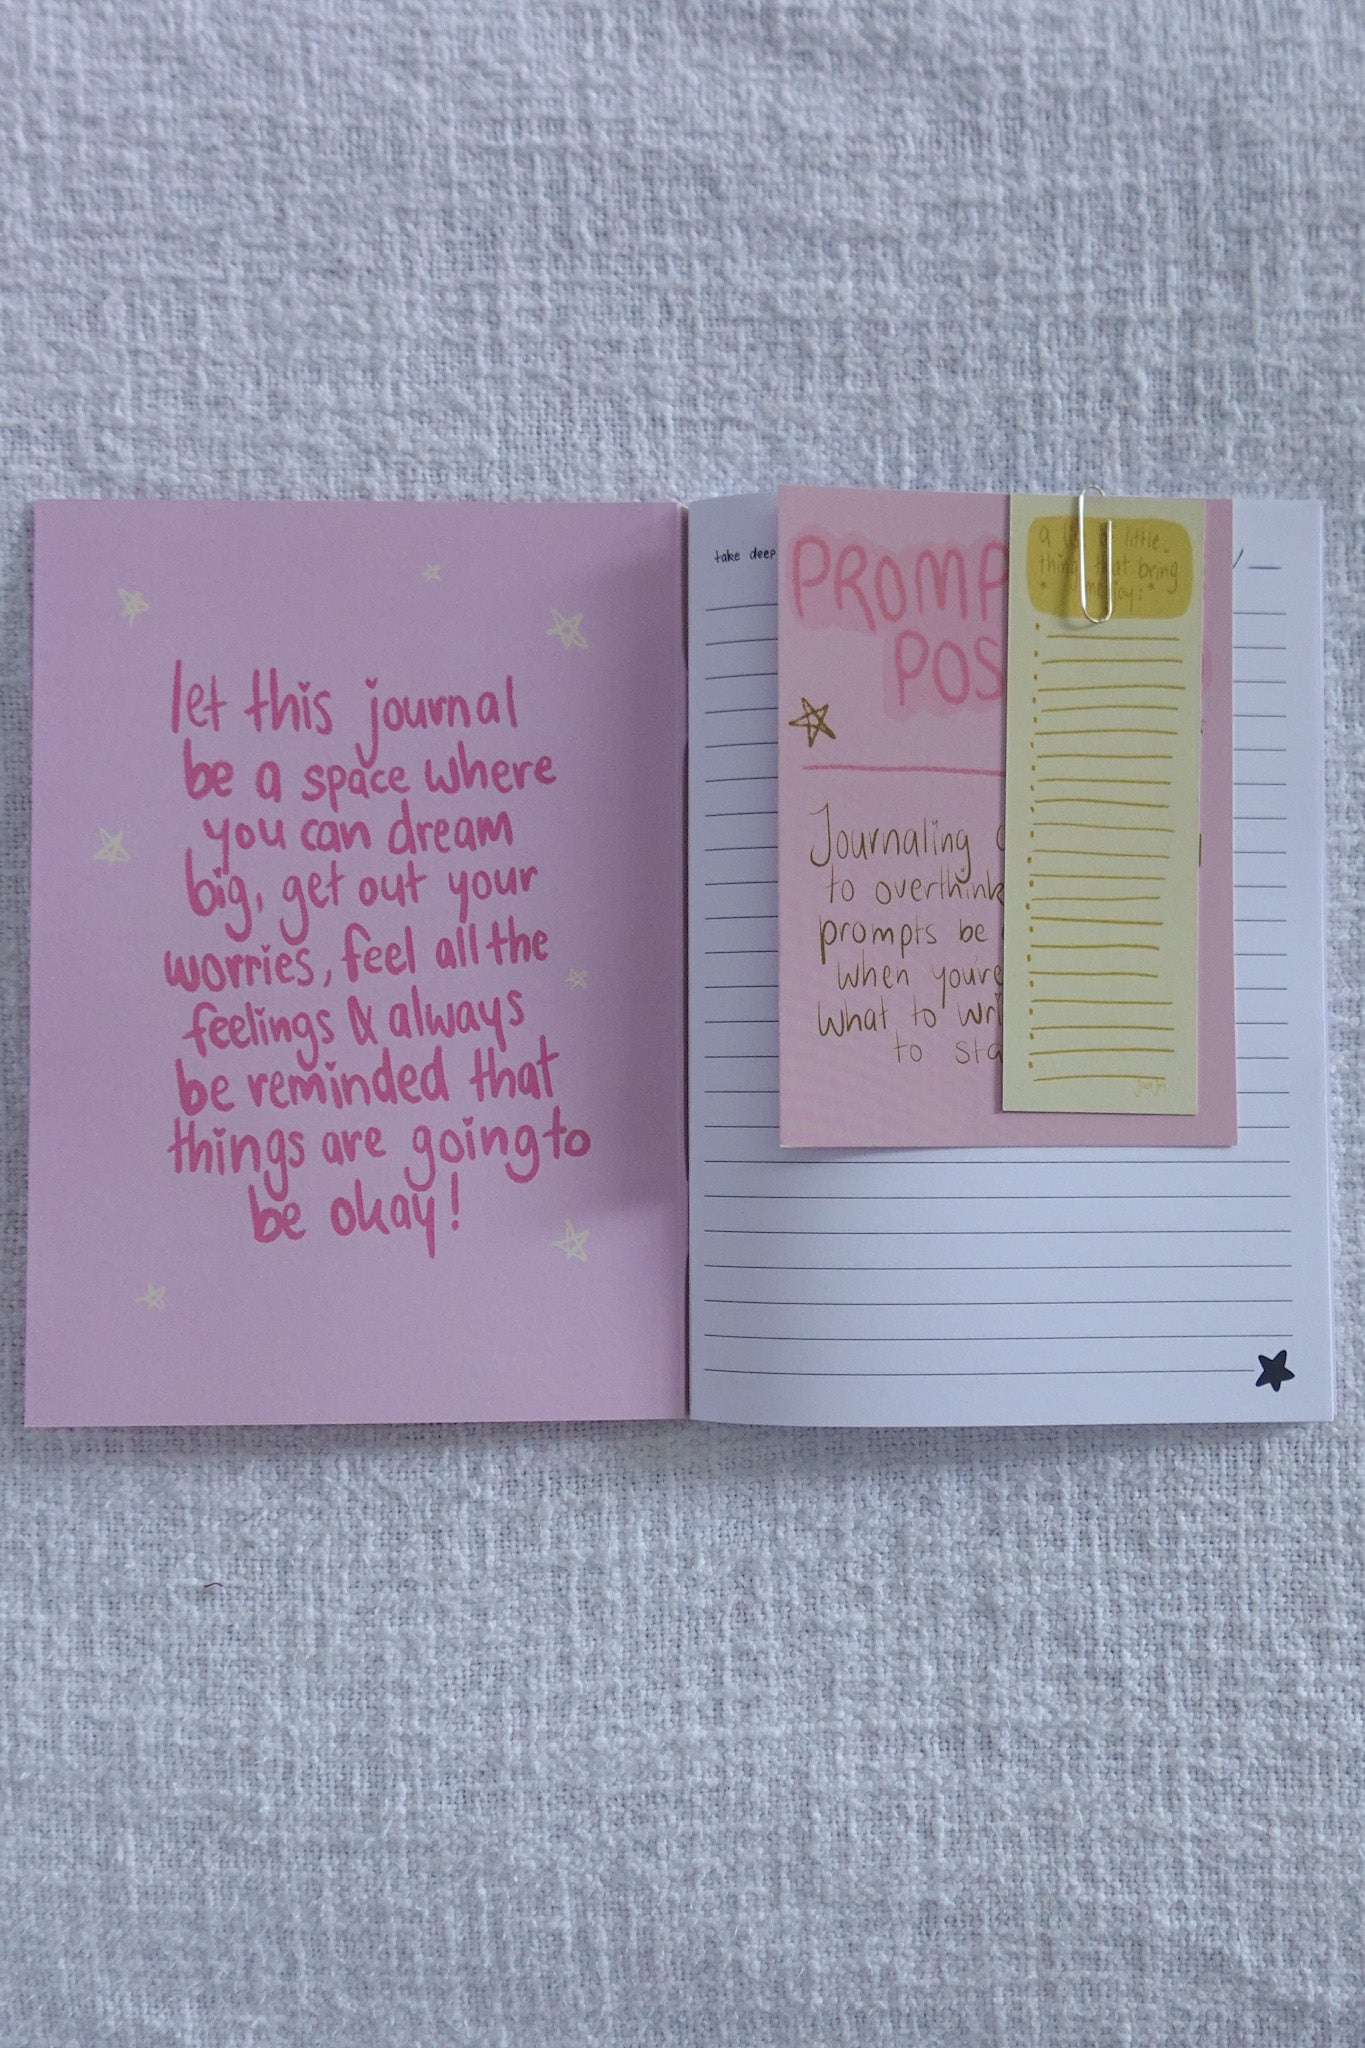 let this journal
be a space where
you can dream
big, get out your
worries, feel all the
feelings & always
be reminded that
things are going to
be okay!
take deep
PROMP
POS
Journaling
to overthink
prompts be
when you're
what to wri
to sta
a little
things that bring
joy: